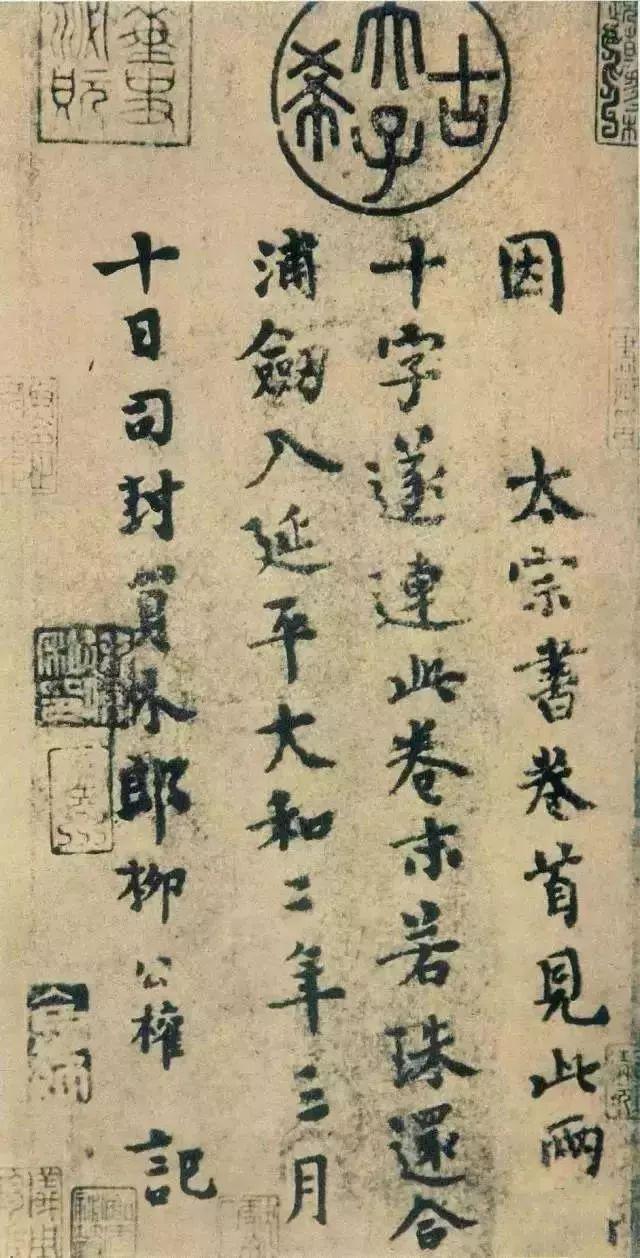 古希天子
因 太宗書卷首見此兩
十字遂連此卷末若珠還合
浦劔入延平大和二年三月
十日司封員外郎柳公權 記